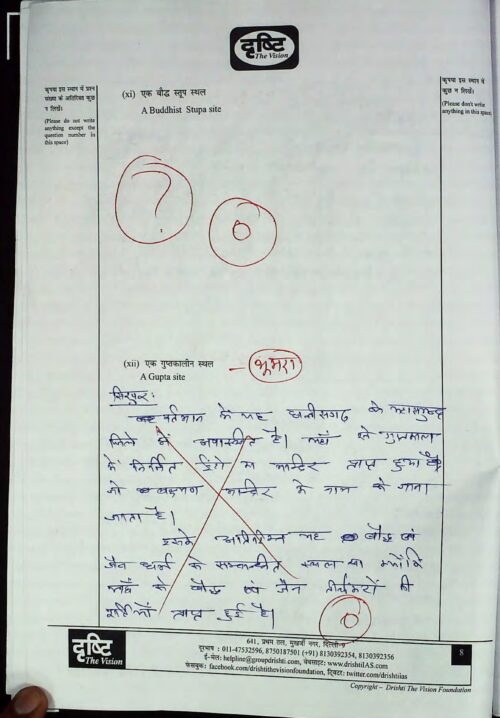 दृष्टि
The Vision
कृपया इस स्थान में प्रश्न
संख्या के अतिरिक्त कुछ
न लिखें।
(Please do not write
anything except the
question number in
this space)
कृपया इस स्थान में
कुछ न लिखें।
(Please don't write
anything in this space)
(xi) एक बौद्ध स्तूप स्थल
A Buddhist Stupa site
?
0
(xii) एक गुप्तकालीन स्थल
A Gupta site
– भूमरा
सिरपुर:
वर्तमान में यह छत्तीसगढ़ के महासमुन्द
जिले में अवस्थित है। यहाँ से गुप्तकाल
में निर्मित ईंटों का मन्दिर प्राप्त हुआ है
जो लक्ष्मण मन्दिर के नाम से जाना
जाता है।
इसके अतिरिक्त यह बौद्ध एवं
जैन धर्म से सम्बन्धित स्थल था क्योंकि
यहाँ से बौद्ध एवं जैन तीर्थंकरों की
मूर्तियाँ प्राप्त हुई है।
0
दृष्टि
The Vision
641, प्रथम तल, मुखर्जी नगर, दिल्ली-9
दूरभाष : 011-47532596, 8750187501 (+91) 8130392354, 8130392356
ई-मेल: helpline@groupdrishti.com, वेबसाइट: www.drishtiIAS.com
फेसबुक: facebook.com/drishtithevisionfoundation, ट्विटर: twitter.com/drishtiias
8
Copyright – Drishti The Vision Foundation